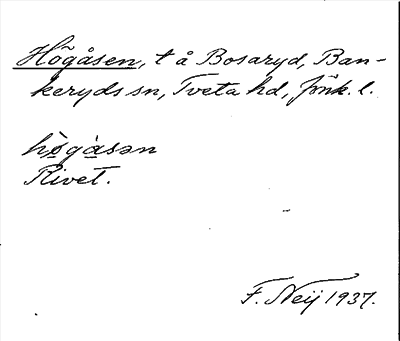 Högåsen, t å Bosaryd, Ban-
keryds sn, Tveta hd, Jönk. l.
hògàsən
Rivet.
F. Neij 1937.